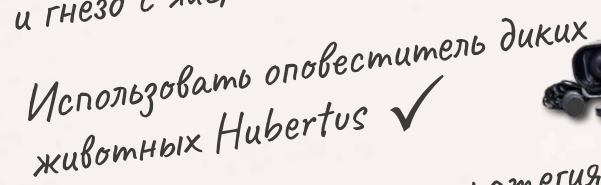 и гнезо с
Использовать оповеститель диких
животных Hubertus ✓